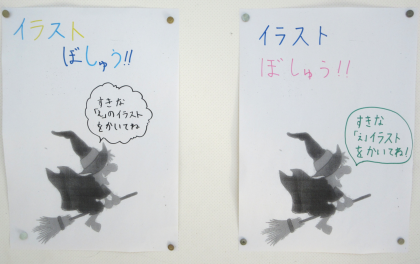 イラスト
ぼしゅう!!
すきな
「え」のイラスト
をかいてね
イラスト
ぼしゅう!!
すきな
「え」イラスト
をかいてね!